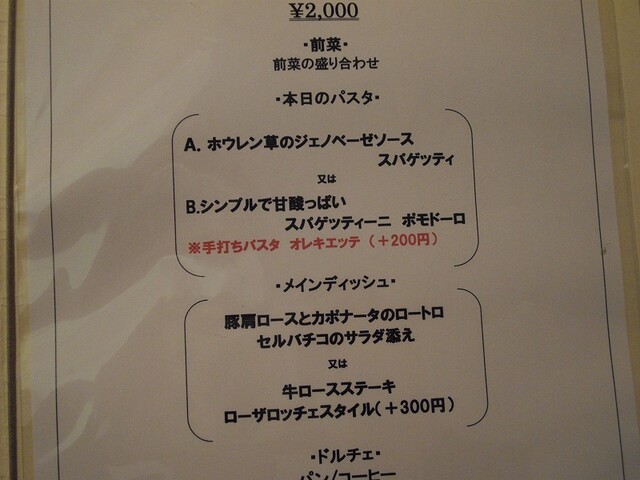 ¥2,000
・前菜・
前菜の盛り合わせ
・本日のパスタ・
A．ホウレン草のジェノベーゼソース
スパゲッティ
又は
B.シンプルで甘酸っぱい
スパゲッティーニ　ポモドーロ
※手打ちパスタ　オレキエッテ（＋200円）
・メインディッシュ・
豚肩ロースとカポナータのロートロ
セルバチコのサラダ添え
又は
牛ロースステーキ
ローザロッチェスタイル（＋300円）
・ドルチェ・
パン/コーヒー